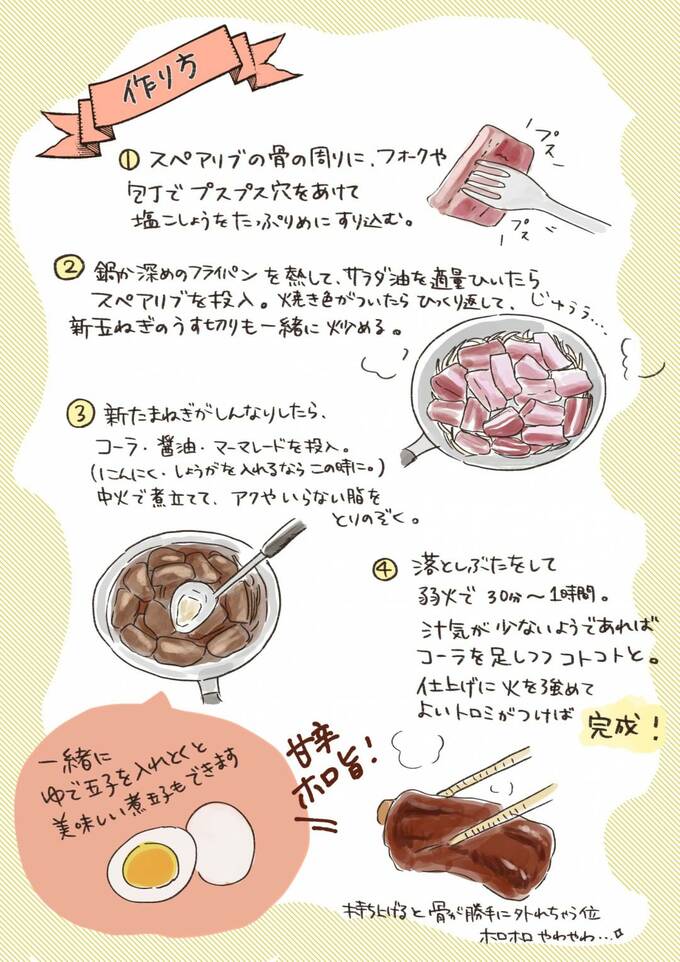 作り方
① スペアリブの骨の周りに、フォークや
包丁でプスプス穴をあけて
塩こしょうをたっぷりめにすり込む。
プス
プス
② 鍋か深めのフライパンを熱して、サラダ油を適量ひいたら
スペアリブを投入。焼き色がついたらひっくり返して、
新玉ねぎのうす切りも一緒に炒める。
じゅぅぅ…
③ 新たまねぎがしんなりしたら、
コーラ・醤油・マーマレードを投入。
(にんにく・しょうがを入れるならこの時に。)
中火で煮立てて、アクやいらない脂を
とりのぞく。
④ 落としぶたをして
弱火で30分〜1時間。
汁気が少ないようであれば
コーラを足しつつコトコトと。
仕上げに火を強めて
よいトロミがつけば
完成!
一緒に
ゆで玉子を入れとくと
美味しい煮玉子もできます
甘辛
ホロ旨!
持ち上げると骨が勝手に外れちゃう位
ホロホロやわやわ…